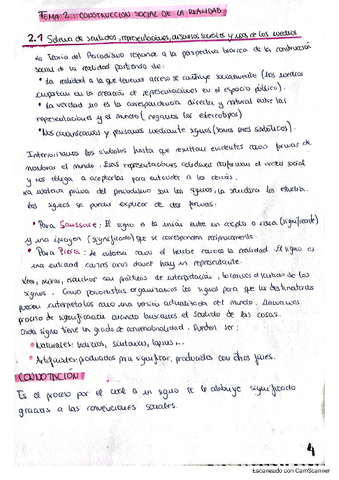 TEMA 2: CONSTRUCCIÓN SOCIAL DE LA REALIDAD
2.1 Sistema de sentidos, representaciones, discursos sociales y usos de los medios
La Teoría del Periodismo responde a la perspectiva teórica de la construcción
social de la realidad partiendo de:
• La realidad a la que tenemos acceso se construye socialmente (los medios
en la creación de representaciones en el espacio público).
• La verdad no es la correspondencia directa y natural entre las
representaciones y el mundo ( los estereotipos)
• Nos comunicamos y pensamos mediante signos (somos seres simbólicos).
Interiorizamos los símbolos hasta que resultan evidentes como formas de
mostrar el mundo. Esas representaciones colectivas conforman el social
y nos obliga a aceptarlas para entender a los demás.
La materia prima del periodismo son los signos, la semiótica los estudia.
Los signos se pueden explicar de dos formas:
• Para Saussure: El signo es la unión entre un concepto o idea (significante)
y una imagen (significado) que se corresponden recíprocamente
• Para Peirce: Se interesa cómo el hombre conoce la realidad. El signo es
una entidad en representante.
Leer, mirar, escuchar son prácticas de interpretación, buscamos el sentido de los
signos. Como periodistas organizamos los signos para que los destinatarios
puedan interpretarlos como una versión del mundo. Llamamos
proceso de significación cuando buscamos el sentido de las cosas.
Cada signo tiene un grado de convencionalidad. Pueden ser:
• Naturales: indicios, síntomas, ...
• Artificiales: producidos para significar, producidos con otros fines.
CONNOTACIÓN
Es el proceso por el cual a un signo se le atribuye significado
gracias a las convenciones sociales.
4
Escaneado con CamScanner